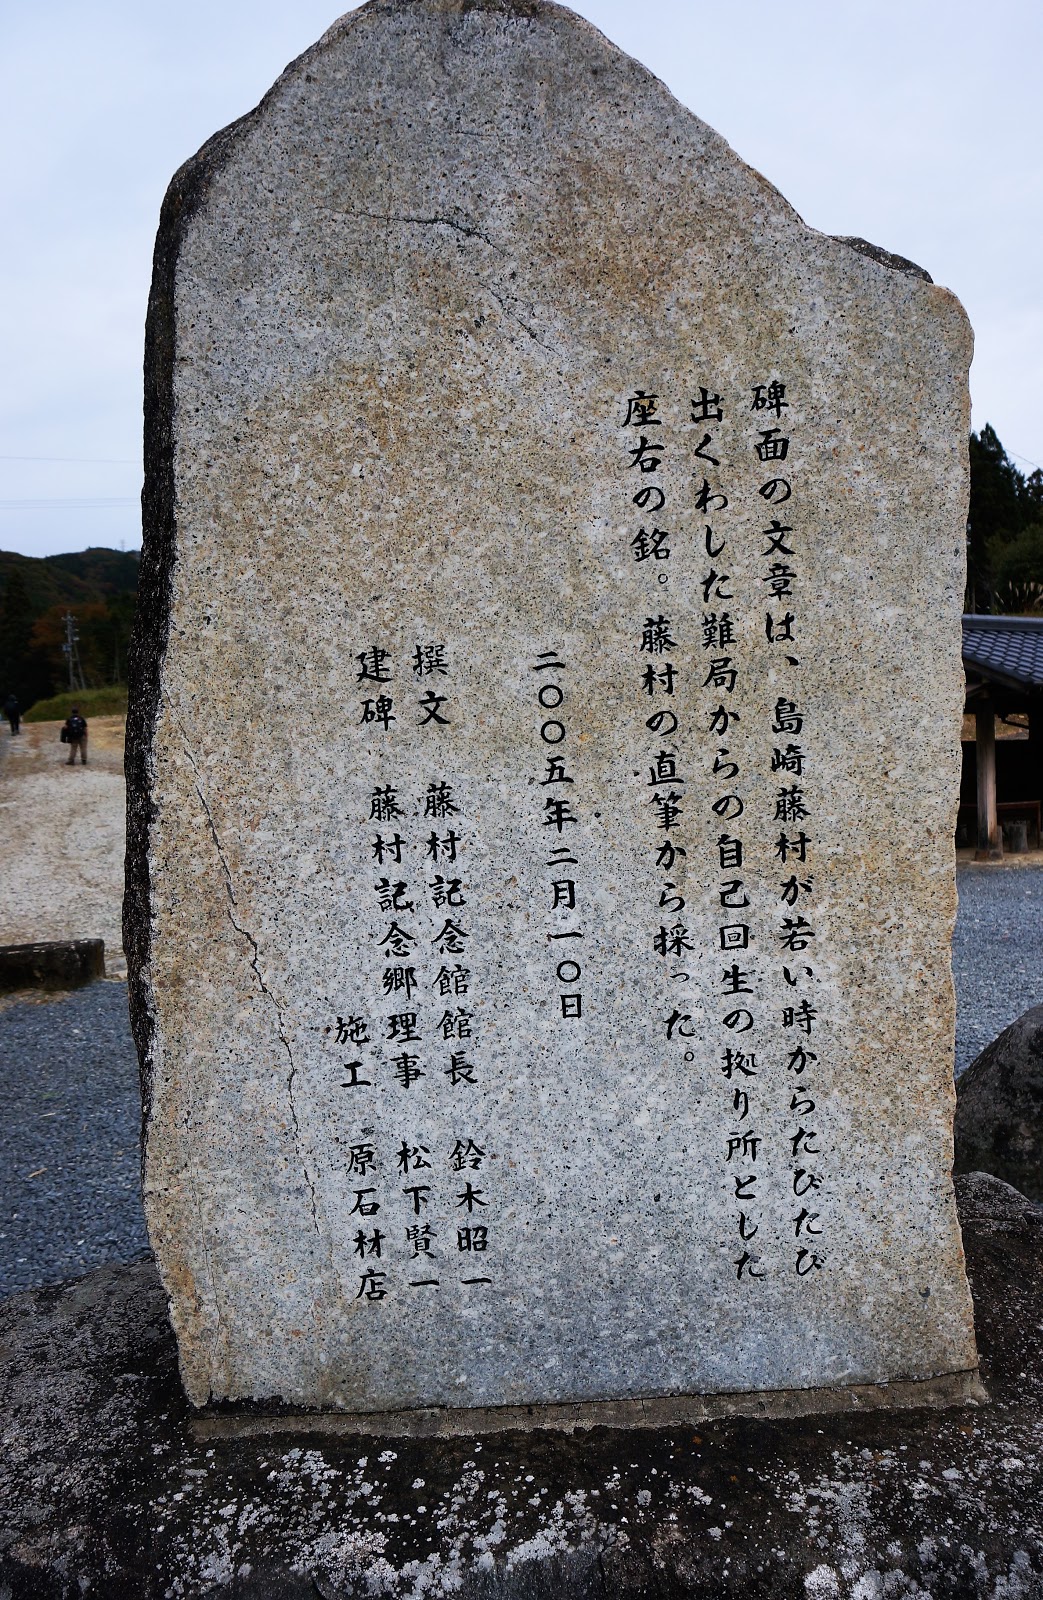 碑面の文章は、島崎藤村が若い時からたびたび
出くわした難局からの自己回生の拠り所とした
座右の銘。藤村の直筆から採った。
二〇〇五年二月一〇日
撰文 藤村記念館館長 鈴木昭一
建碑 藤村記念郷理事 松下賢一
施工 原石材店